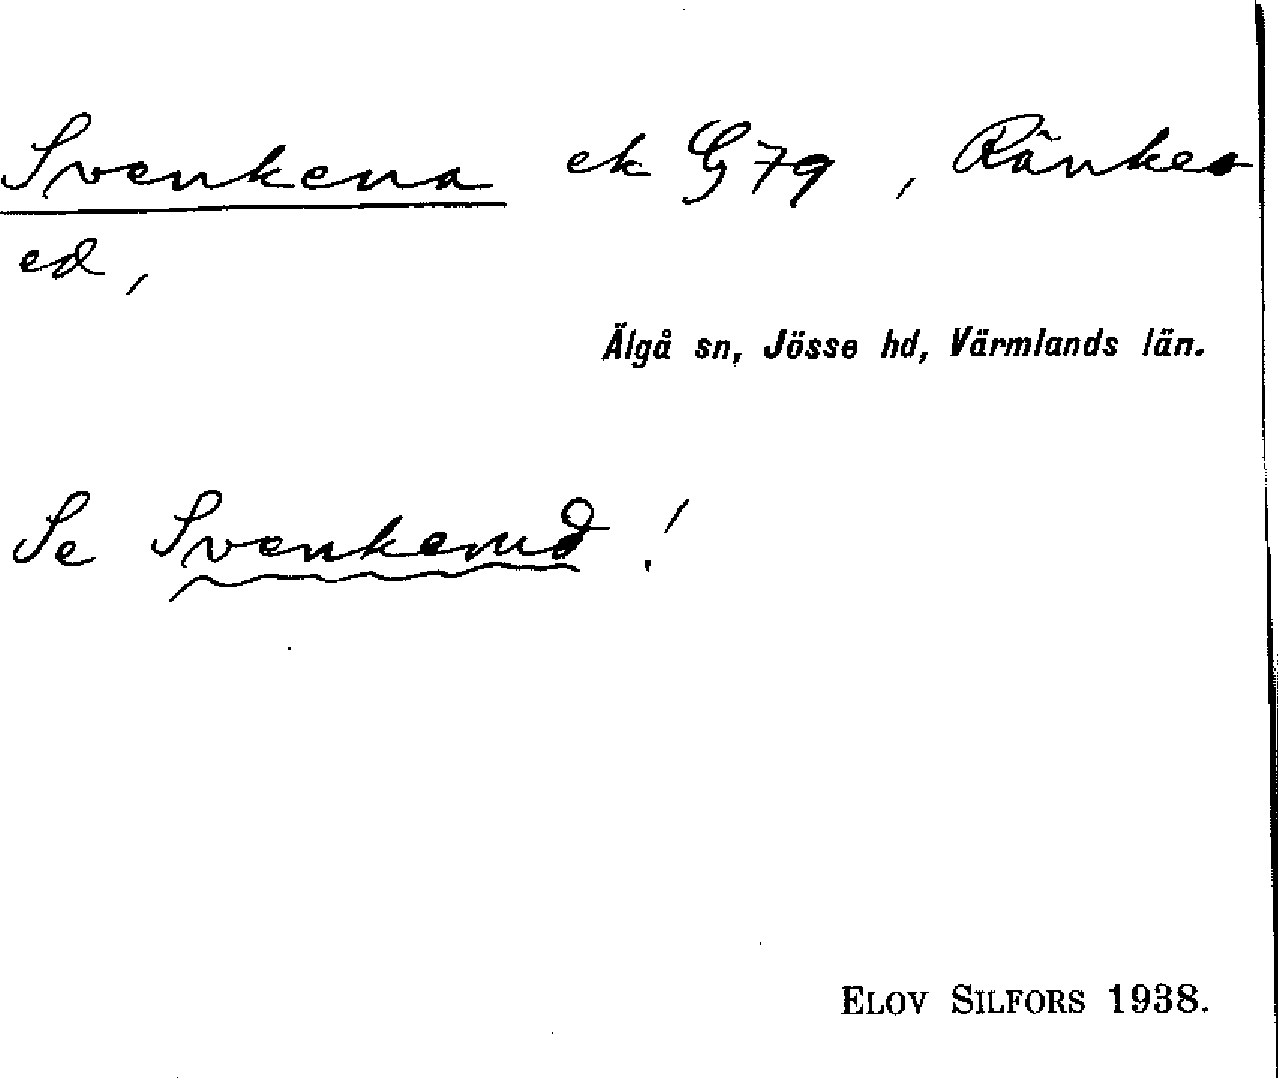 Svenkena ek G 79, Ränkes
ed,
Älgå sn, Jösse hd, Värmlands län.
Se Svenkerud!
ELOV SILFORS 1938.